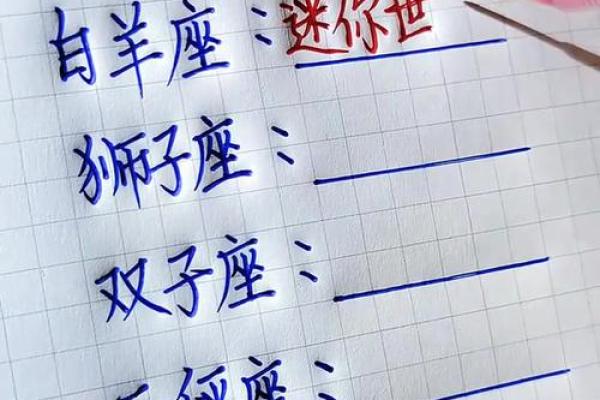 白羊座：迷你世
狮子座：
双子座：
座：